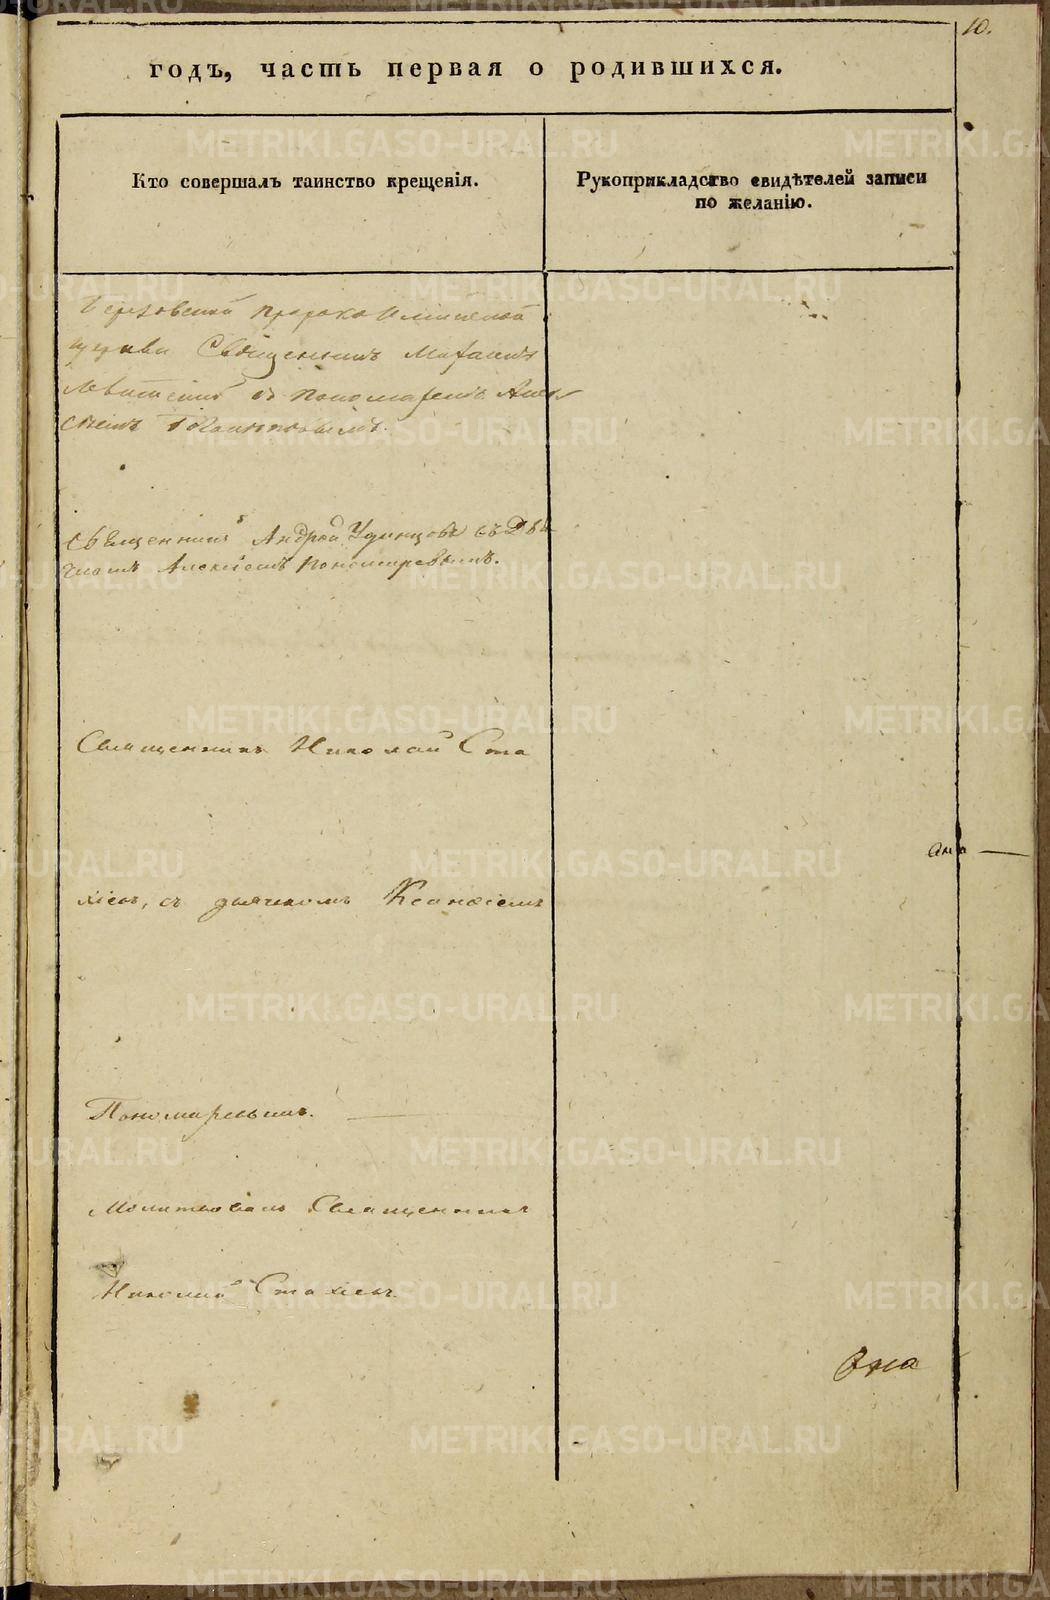 10.
годъ, часть первая о родившихся.
Кто совершалъ таинство крещенія.
Рукоприкладство свидѣтелей записи
по желанію.
Пророко Ильинской
церкви Священникъ
съ Пономаремъ Алек
сѣемъ
Священникъ Андрей Удинцовъ съ Дья
чкомъ Алексіемъ Пономаревымъ.
Священникъ Николай Ста
хіевъ, съ дьячкомъ
Пономаревымъ.
Молитвовалъ Священникъ
Николай Стахіевъ.
METRIKI.GASO-URAL.RU